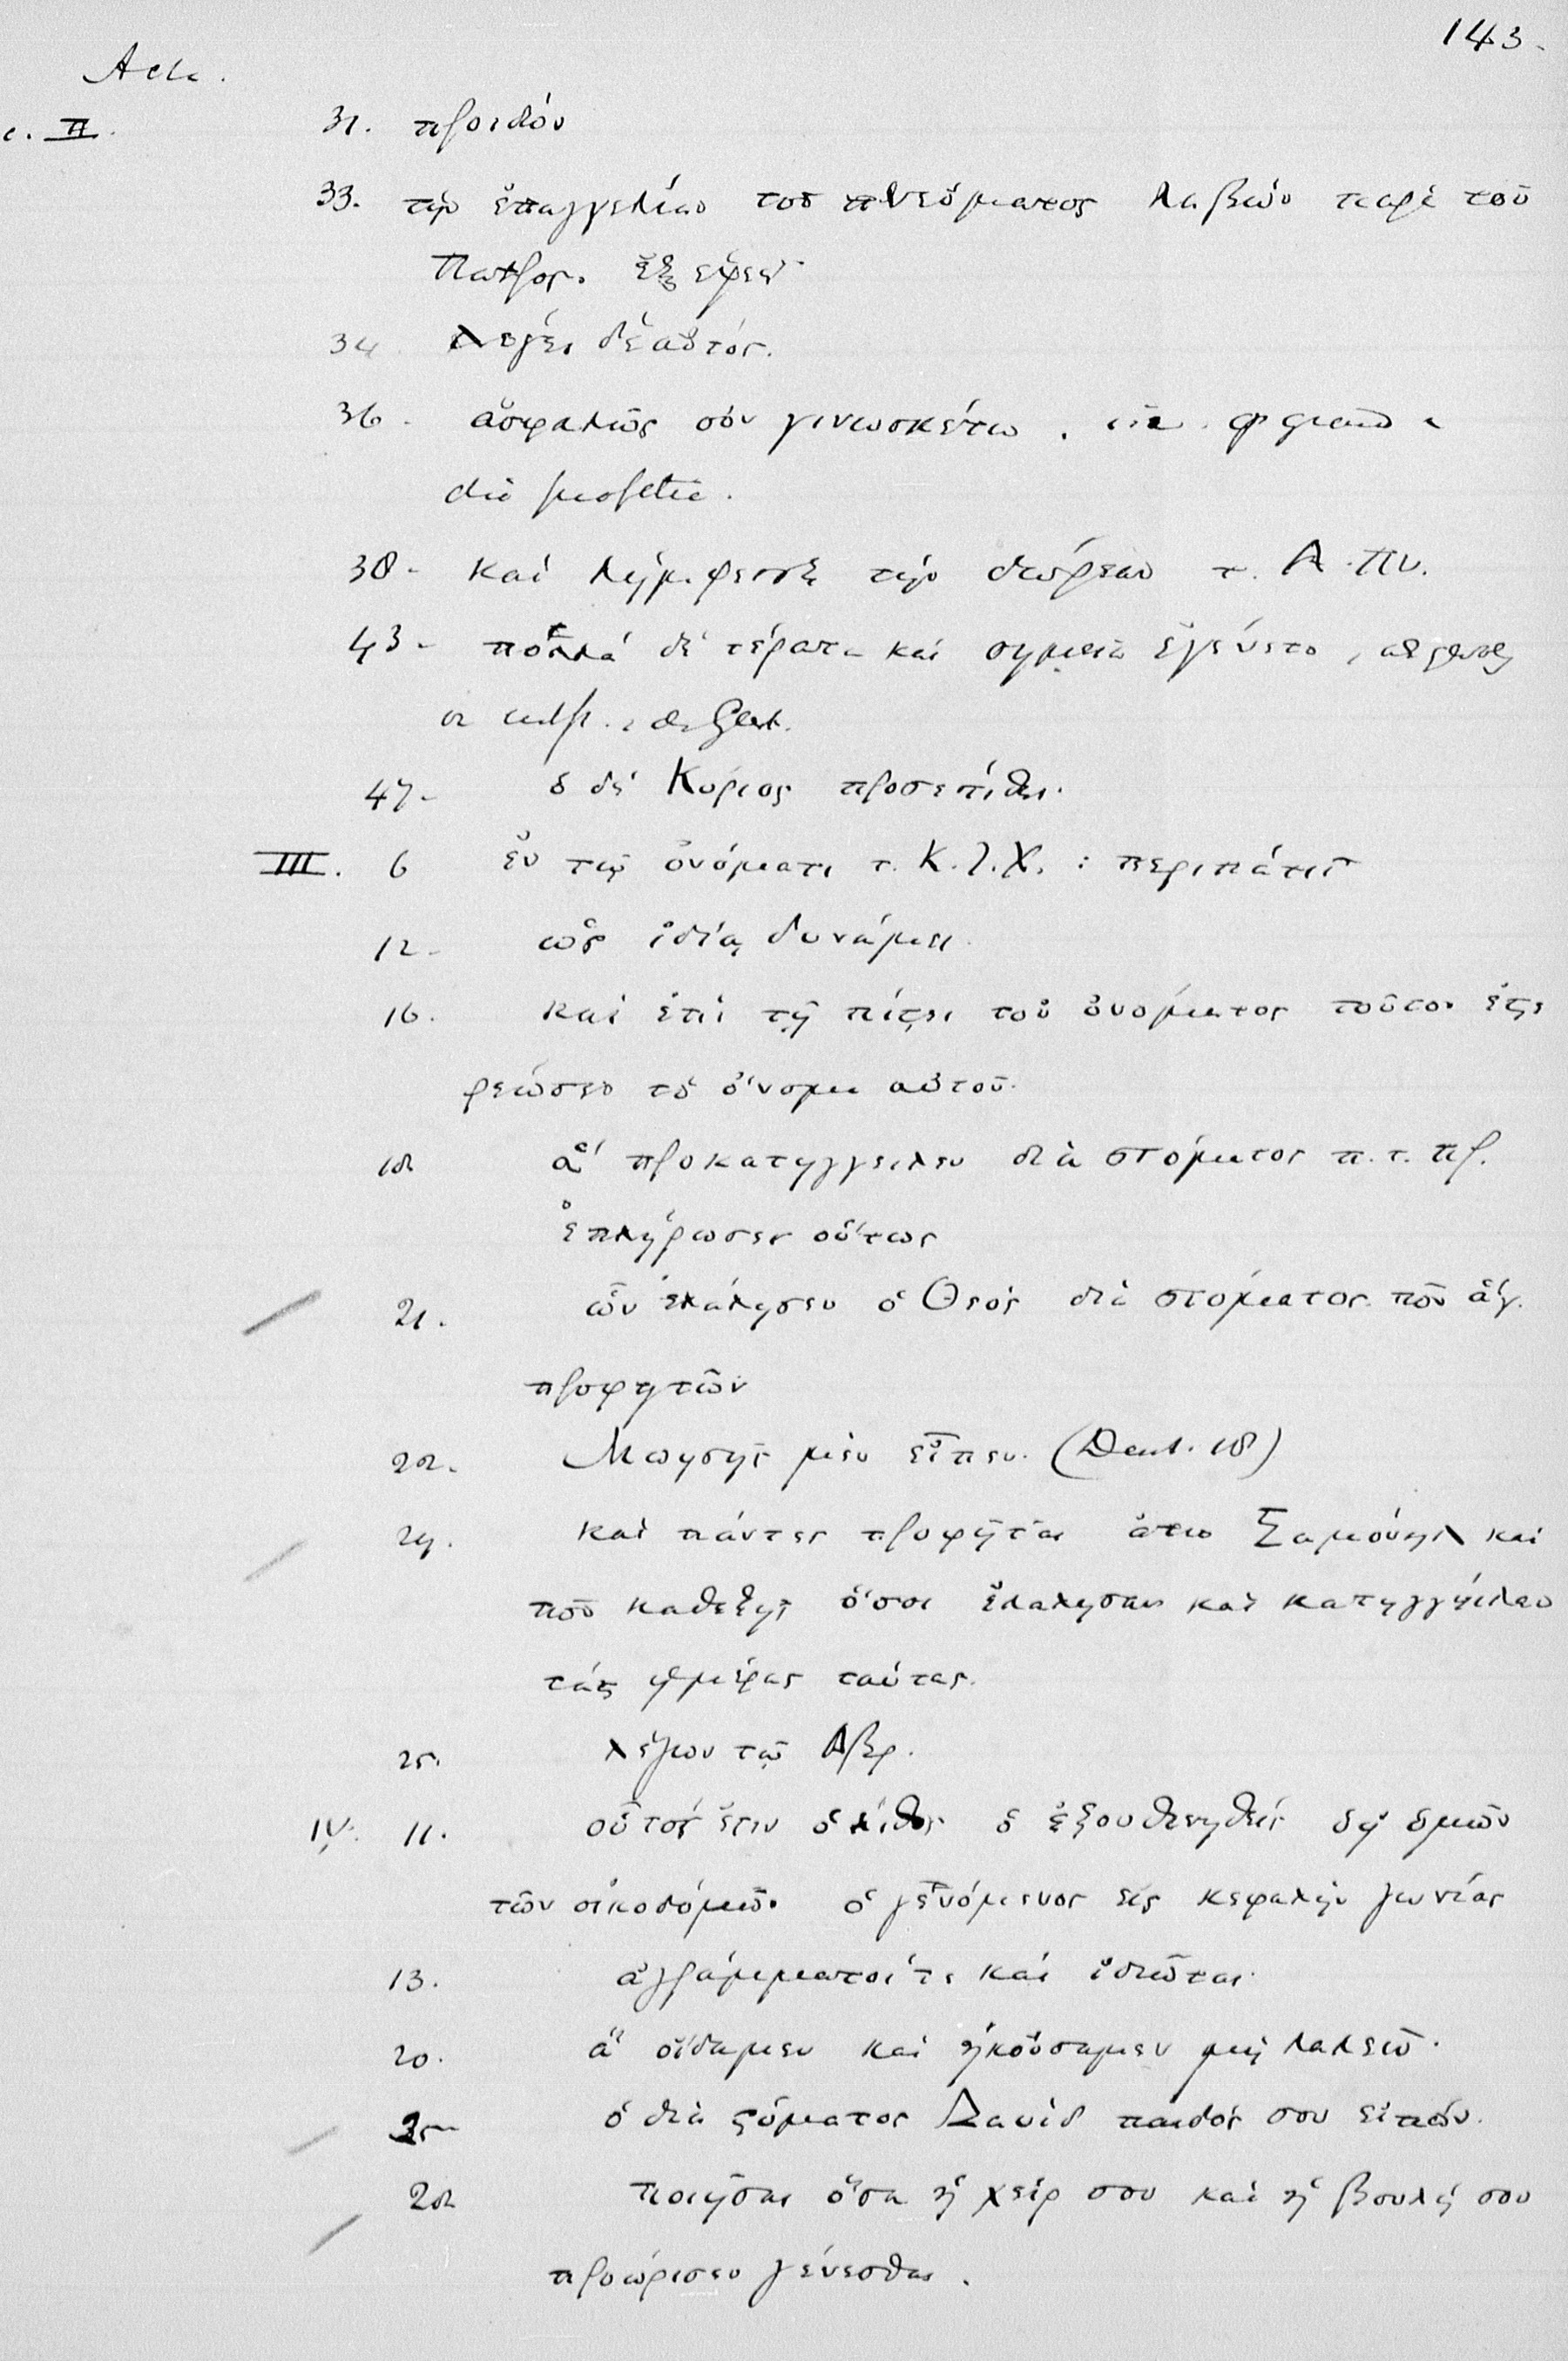 143.
Acta.
c. II. 31. προιδὸν
33. τὴν ἐπαγγελίαν τοῦ πνεύματος λαβὼν παρὰ τοῦ
Πατρος. ἐξέχεεν
34 λέγει δὲ αὐτός.
36. ἀσφαλῶς οὖν γινωσκέτω.
38. καὶ λήμψεσθε τὴν δωρεὰν τ. Α. Πν.
43. πολλά δὲ τέρατα καὶ σημεῖα ἐγένετο,
47. ὁ δὲ Κύριος προσετίθει.
III. 6 ἐν τῷ ὀνόματι τ. Κ. Ι. Χ. : περιπάτει
12. ὡς ἰδίᾳ δυνάμει.
16. καὶ ἐπὶ τῇ πίστει τοῦ ὀνόματος τούτου ἐστε
ρεώσεν τὸ ὄνομα αὐτοῦ.
18 ἃ προκατηγγειλεν διὰ στόματος π. τ. πρ.
ἐπλήρωσεν οὕτως
21. ὧν ἐλάλησεν ὁ Θεός διὰ στόματος τῶν ἁγ.
προφητῶν
22. Μωησῆς μὲν εἶπεν. (Deut. 18)
24. καὶ πάντες προφῆται ἀπο Σαμούηλ καὶ
τῶν καθεξῆς ὅσοι ἐλάλησαν καὶ κατηγγειλαν
τὰς ἡμέρας ταύτας.
25. λέγων τῷ Αβρ.
IV. 11. οὗτος ἐστιν ὁ λίθος ὁ ἐξουθενηθεὶς ὑφ' ὑμῶν
τῶν οἰκοδόμων ὁ γενόμενος εἰς κεφαλὴν γωνίας
13. ἀγράμματοί τε καὶ ἰδιῶται.
20. ἃ οἴδαμεν καὶ ἠκούσαμεν μὴ λαλεῖν.
25 ὁ διὰ στόματος Δαυὶδ παιδός σου εἰπών.
28 ποιῆσαι ὅσα ἡ χείρ σου καὶ ἡ βουλή σου
προώρισεν γένεσθαι.